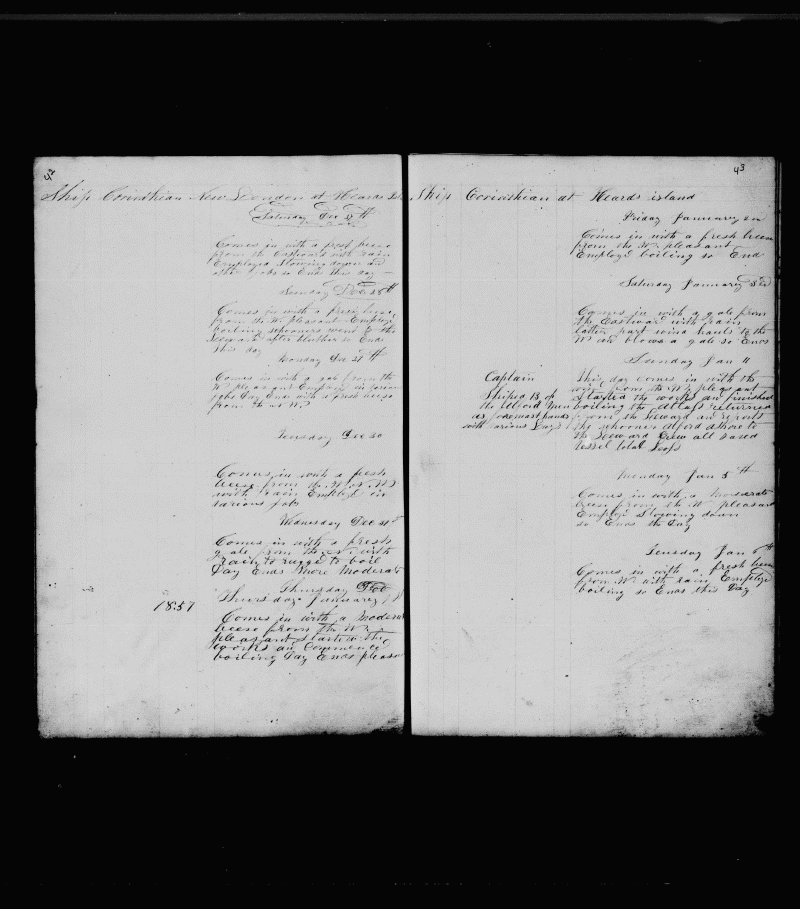 42
Ship Corinthian New London at Heards Isl
Saturday Dec 27th
Comes in with a fresh breese
from the Eastward with rain
Employed Stowing down and
other jobs so Ends this day
Sunday Dec 28th
Comes in with a fresh breese
from the W pleasant Employe
boiling schooners went to the
Leeward after blubber so Ends
this day
Monday Dec 29th
Comes in with a gale from the
W pleasant Employ in
jobs Day Ends with a fresh breese
from the
Teusday Dec 30
Comes in with a fresh
breese from the
with rain Employe in
various jobs
Wednesday Dec 31st
Comes in with a fresh
gale from the with
rain to rugged to boil
Day Ends more moderate
Thursday Dec
1857 Thursday Januarey 1st
Comes in with a moderat
breese from the W
pleasant started the
works an Commence
boiling Day Ends pleasa
43
Ship Corinthian at Heards island
Friday Januarey 2n
Comes in with a fresh breese
from the W pleasant
Employe boiling so End
Saturday Januarey 3rd
Comes in with a gale from
the Eastward with rain
latter part wind hauls to the
W and blows a gale so Ends
Sunday Jan 4
This day comes in with the
wind from the W pleasant
Started the works an finished
boiling the Atlas returned
from the Leeward an reports
the schooner Alford ashore to
the Leeward Crew all saved
vessel total Loss
Captain
Shiped 13 of
the Alford men
as foremast hands
with various Lays
Monday Jan 5th
Comes in with a moderate
breese from the W pleasant
Employe Stowing down
so Ends the Day
Teusday Jan 6th
Comes in with a fresh breese
from W with rain Employe
boiling so Ends this Day